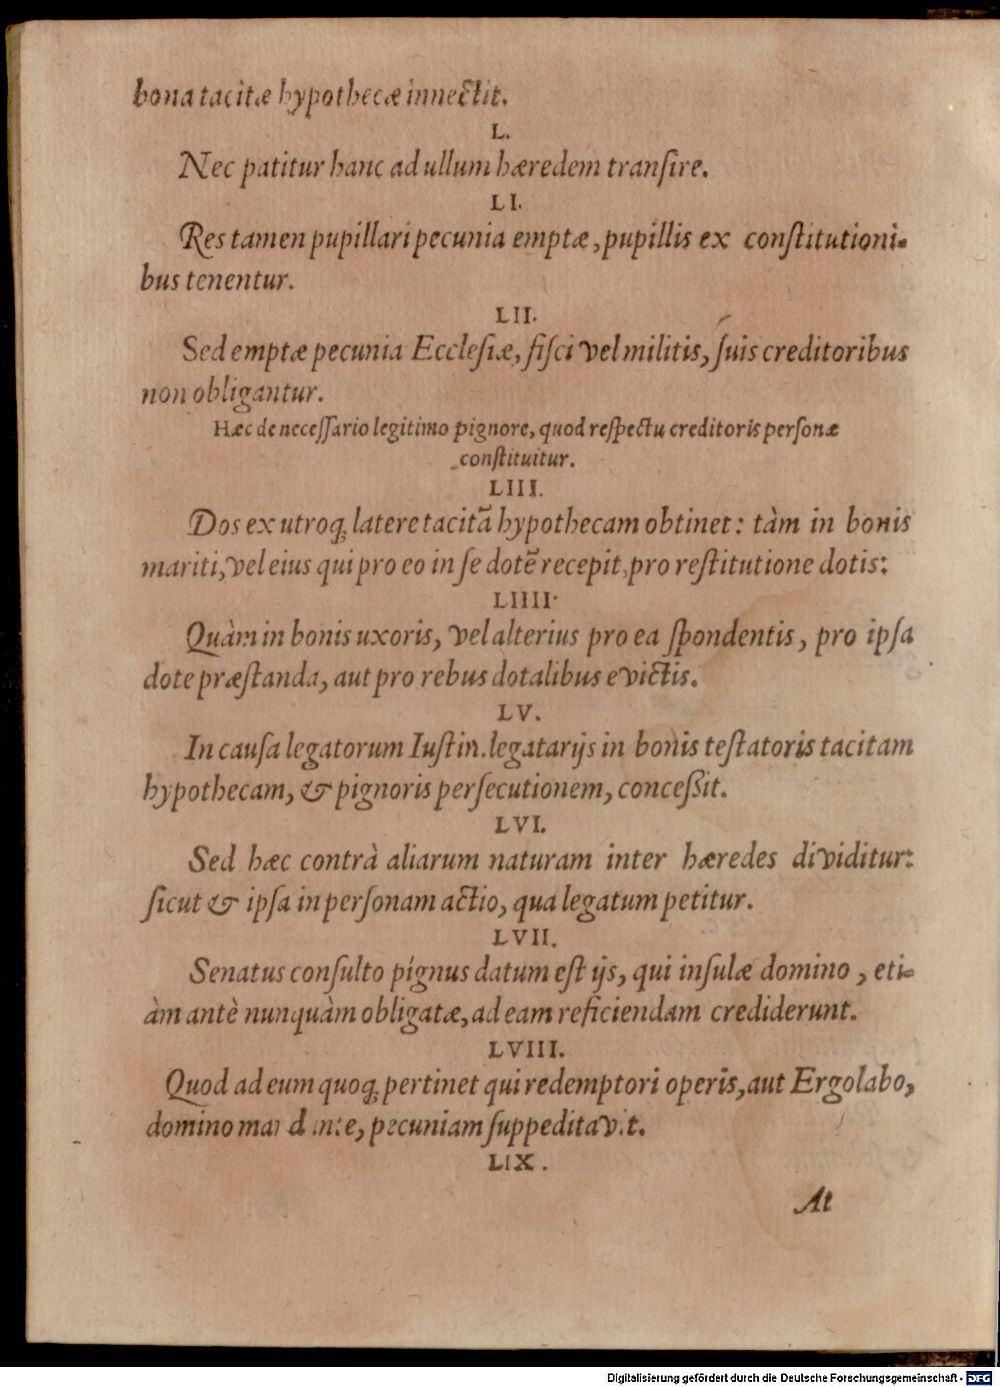 bona tacitæ hypothecæ innectit.
L.
Nec patitur hanc ad ullum hæredem transire.
LI.
Res tamen pupillari pecunia emptæ, pupillis ex constitutioni-
bus tenentur.
LII.
Sed emptæ pecunia Ecclesiæ, fisci vel militis, suis creditoribus
non obligantur.
Hæc de necessario legitimo pignore, quod respectu creditoris personæ
constituitur.
LIII.
Dos ex utroq; latere tacitā hypothecam obtinet: tàm in bonis
mariti, vel eius qui pro eo in se dotē recepit, pro restitutione dotis:
LIIII.
Quàm in bonis uxoris, vel alterius pro ea spondentis, pro ipsa
dote præstanda, aut pro rebus dotalibus evictis.
LV.
In causa legatorum Iustin. legatarijs in bonis testatoris tacitam
hypothecam, & pignoris persecutionem, concessit.
LVI.
Sed hæc contrà aliarum naturam inter hæredes dividitur:
sicut & ipsa in personam actio, qua legatum petitur.
LVII.
Senatus consulto pignus datum est ijs, qui insulæ domino, eti-
àm antè nunquàm obligatæ, ad eam reficiendam crediderunt.
LVIII.
Quod ad eum quoq; pertinet qui redemptori operis, aut Ergolabo,
domino mandante, pecuniam suppeditavit.
LIX.
At
Digitalisierung gefördert durch die Deutsche Forschungsgemeinschaft - DFG